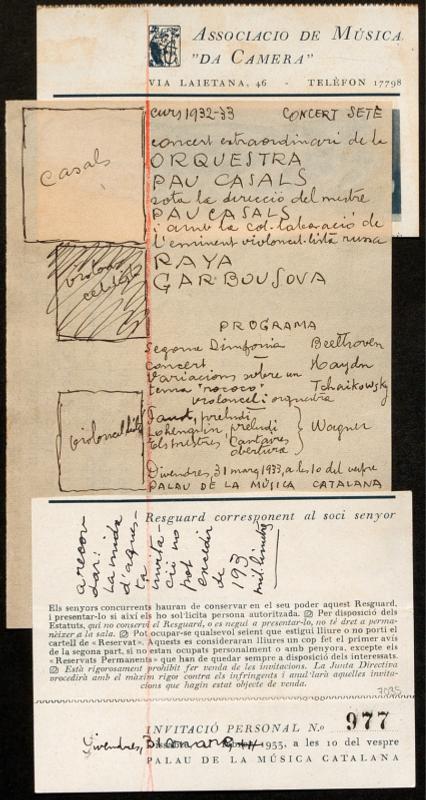 ASSOCIACIO DE MÚSICA
"DA CAMERA"
VIA LAIETANA, 46 - TELÈFON 17798
curs 1932-33 CONCERT SETÈ
concert extraordinari de la
ORQUESTRA
PAU CASALS
sota la direcció del mestre
PAU CASALS
i amb la col·laboració de
l'eminent violoncel·lista russa
RAYA
GARBOUSOVA
Casals
violon
violoncel·lista
PROGRAMA
Segona Simfonia Beethoven
Concert Haydn
Variacions sobre un
tema "rococo" Tchaikowsky
violoncel i orquestra
Faust, preludi
Lohengrin preludi
Els mestres Cantaires
obertura
Wagner
Divendres, 31 març 1933, a les 10 del vespre
PALAU DE LA MÚSICA CATALANA
Resguard corresponent al soci senyor
a recor
dar:
La mida
d'aques-
ta
invita-
ció no
pot
excedir
de
193
mil·límetres
Els senyors concurrents hauran de conservar en el seu poder aquest Resguard,
i presentar-lo si així els ho sol·licita persona autoritzada. Per disposició dels
Estatuts, qui no conservi el Resguard, o es negui a presentar-lo, no té dret a perma-
nèixer a la sala. Pot ocupar-se qualsevol seient que estigui lliure o no porti el
cartell de «Reservat». Aquests es consideraran lliures un cop fet el primer avís
de la segona part, si no estan ocupats personalment o amb penyora, excepte els
«Reservats Permanents» que han de quedar sempre a disposició dels interessats.
Està rigorosament prohibit fer venda de les invitacions. La Junta Directiva
procedirà amb el màxim rigor contra els infringents i anul·larà aquelles invita-
cions que hagin estat objecte de venda.
INVITACIÓ PERSONAL N.º 977
Divendres, 31 març 1933, a les 10 del vespre
PALAU DE LA MÚSICA CATALANA